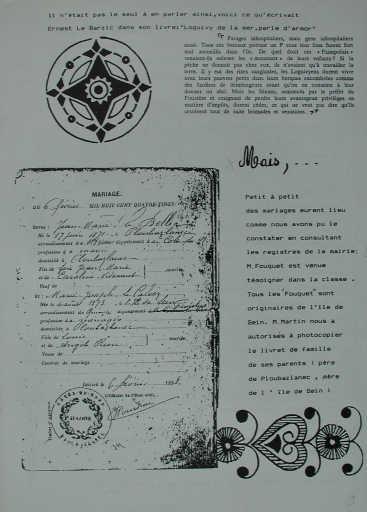 Il n'était pas le seul à en parler ainsi,voici ce qu'écrivait
Ernest Le Barzic dans son livre:"Loguivy de la mer,perle d'armor"
Parages inhospitaliers, mais gens inhospitaliers
aussi. Tous ces bateaux portant un P sous leur lisse furent fort
mal accueillis dans l'île. De quel droit ces « Paimpolais »
venaient-ils enlever les « homards » de leurs enfants ? Si la
pêche ne donnait pas chez eux, ils n'avaient qu'à travailler la
terre. Il y eut des rixes sanglantes, les Loguiviens durent vivre
avec leurs pauvres petits dans leurs barques encombrées comme
des fardiers de déménageurs avant qu'on ne consente à leur
donner un abri. Mais les Sénans, semoncés par le préfet du
Finistère et craignant de perdre leurs avantageux privilèges en
matière d'impôts, durent céder, ce qui ne veut pas dire qu'ils
cessèrent tout de suite brimades et vexations.
Mais,...
Petit à petit
des mariages eurent lieu
comme nous avons pu le
constater en consultant
les registres de la mairie;
M.Fouquet est venue
témoigner dans la classe .
Tous les Fouquet sont
originaires de l'île de
Sein. M.Martin nous a
autorisés à photocopier
le livret de famille
de ses parents ( père
de Ploubazlanec , mère
de l ' île de Sein )
MARIAGE.
DU 6 février MIL HUIT CENT QUATRE-VINGT
Entre : Jean Marie
Né le 17 juin 1871 à Ploubazlanec
arrondissement d département d
profession d marin
domicilié à Ploubazlanec
Fils de Jean Marie
et de Caroline
Veuf de
Et : Marie Joseph Le
Née le 1873 à
arrondissement de département
profession d ménagère
domiciliée à Ploubazlanec
Fille de Louis
et de Angèle
Veuve de
Contrat de mariage
Délivré le 6 février 189
L'Officier de l'État civil,